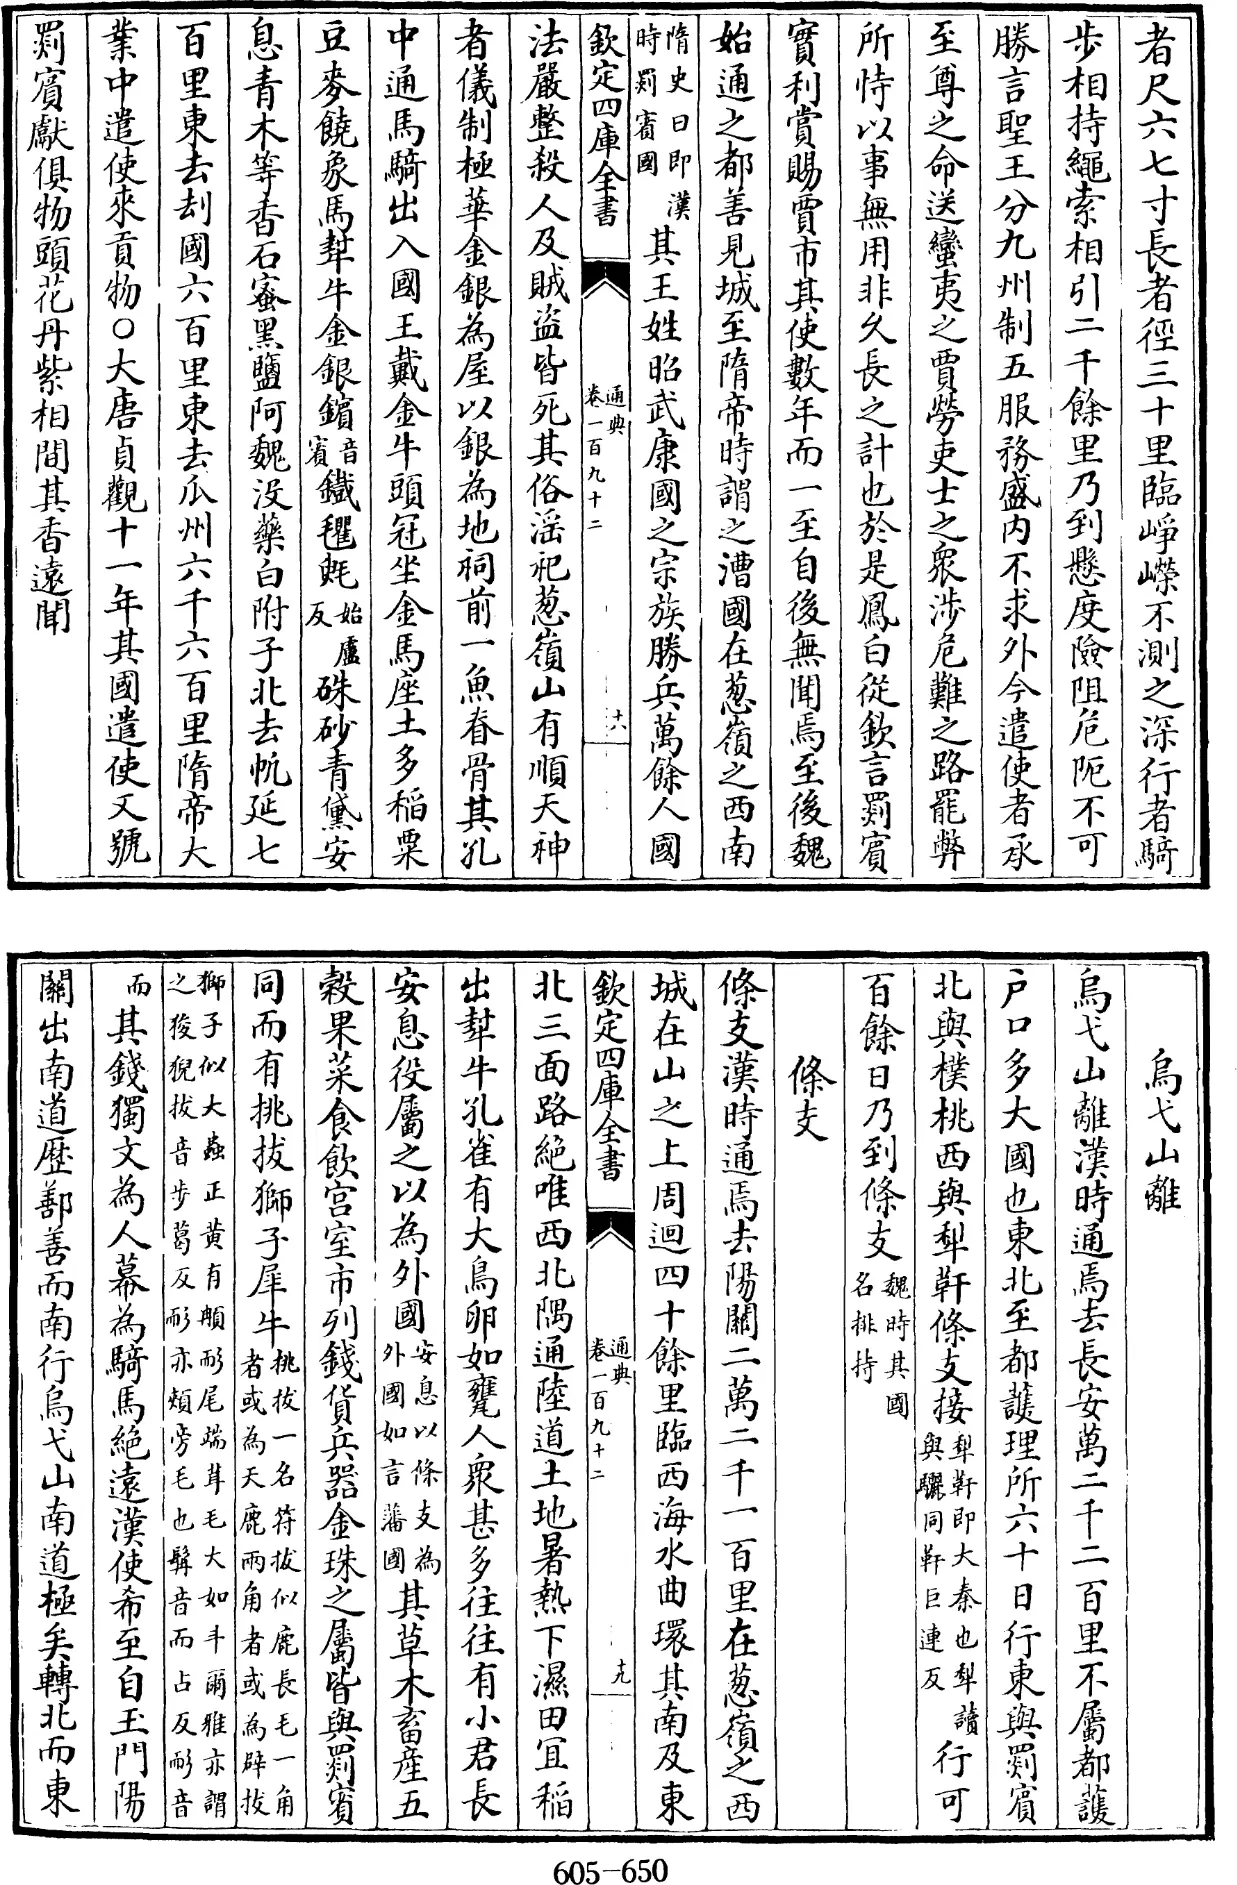 者尺六七寸長者徑三十里臨崢嶸不測之深行者騎
步相持繩索相引二千餘里乃到懸度險阻危阨不可
勝言聖王分九州制五服務盛内不求外今遣使者承
至尊之命送蠻夷之賈勞吏士之衆涉危難之路罷弊
所恃以事無用非久長之計也於是鳳白從欽言罽賓
實利賞賜賈市其使數年而一至自後無聞焉至後魏
始通之都善見城至隋帝時謂之漕國在葱嶺之西南
隋史曰即漢
時罽賓國
其王姓昭武康國之宗族勝兵萬餘人國
欽定四庫全書
通典
卷一百九十二
十八
法嚴整殺人及賊盜皆死其俗淫祀葱嶺山有順天神
者儀制極華金銀為屋以銀為地祠前一魚脊骨其孔
中通馬騎出入國王戴金牛頭冠坐金馬座土多稻粟
豆麥饒象馬犎牛金銀鑌
音
賓
鐵氍㲘
始盧
反
硃砂青黛安
息青木等香石蜜黑鹽阿魏没藥白附子北去帆延七
百里東去刦國六百里東去瓜州六千六百里隋帝大
業中遣使來貢物○大唐貞觀十一年其國遣使又號
罽賓獻俱物頭花丹紫相間其香遠聞
烏弋山離
烏弋山離漢時通焉去長安萬二千二百里不屬都護
户口多大國也東北至都護理所六十日行東與罽賓
北與樸桃西與犁靬條支接
犁靬即大秦也犁讀
與驪同靬巨連反
行可
百餘日乃到條支
魏時其國
名排持
條支
條支漢時通焉去陽關二萬二千一百里在葱嶺之西
城在山之上周迴四十餘里臨西海水曲環其南及東
欽定四庫全書
通典
卷一百九十二
十九
北三面路絶唯西北隅通陸道土地暑熱下濕田宜稻
出犎牛孔雀有大鳥卵如甕人衆甚多往往有小君長
安息役屬之以為外國
安息以條支為
外國如言藩國
其草木畜産五
穀果菜食飲宫室市列錢貨兵器金珠之屬皆與罽賓
同而有挑拔獅子犀牛
桃拔一名符拔似鹿長毛一角
者或為天鹿兩角者或為辟拔
獅子似大蟲正黄有䫇耏尾端茸毛大如斗爾雅亦謂
之狻猊拔音步葛反耏亦頰旁毛也髥音而占反耏音
而
其錢獨文為人幕為騎馬絶遠漢使希至自玉門陽
關出南道歴鄯善而南行烏弋山南道極矣轉北而東
605-650